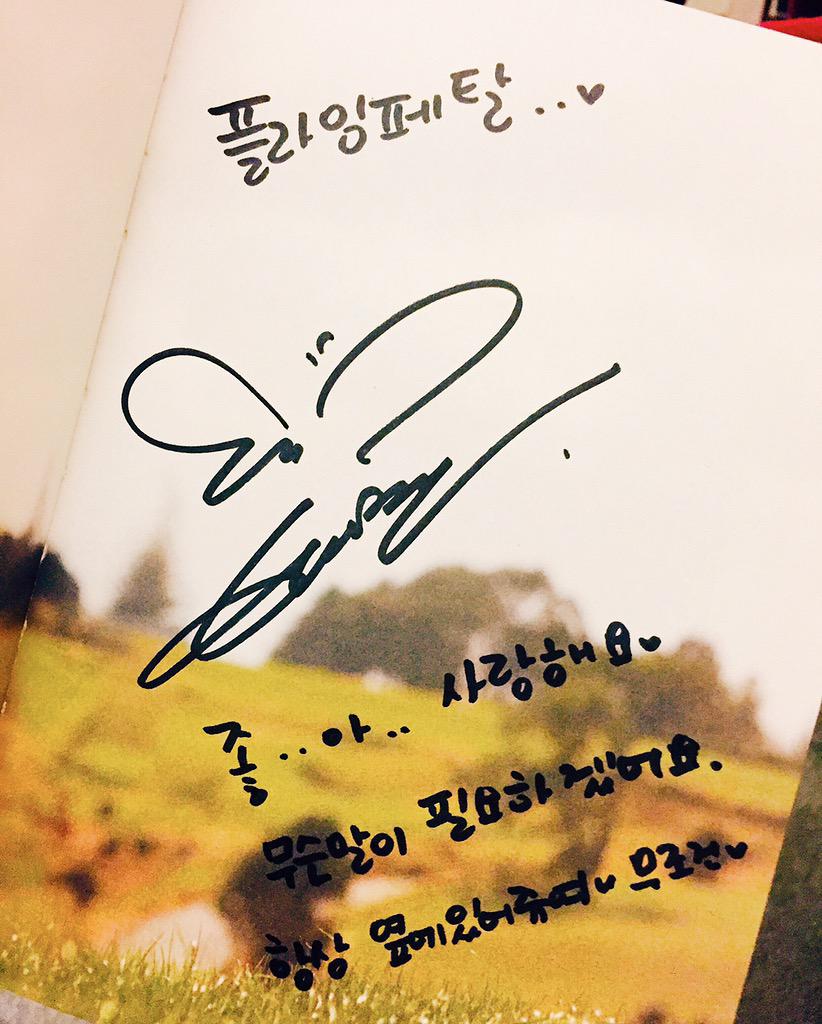 플라잉페탈..♥
사랑해요♥
졸..아..
무슨말이 필요하겠어요.
항상 옆에있어쥬여♥ 무조건♥